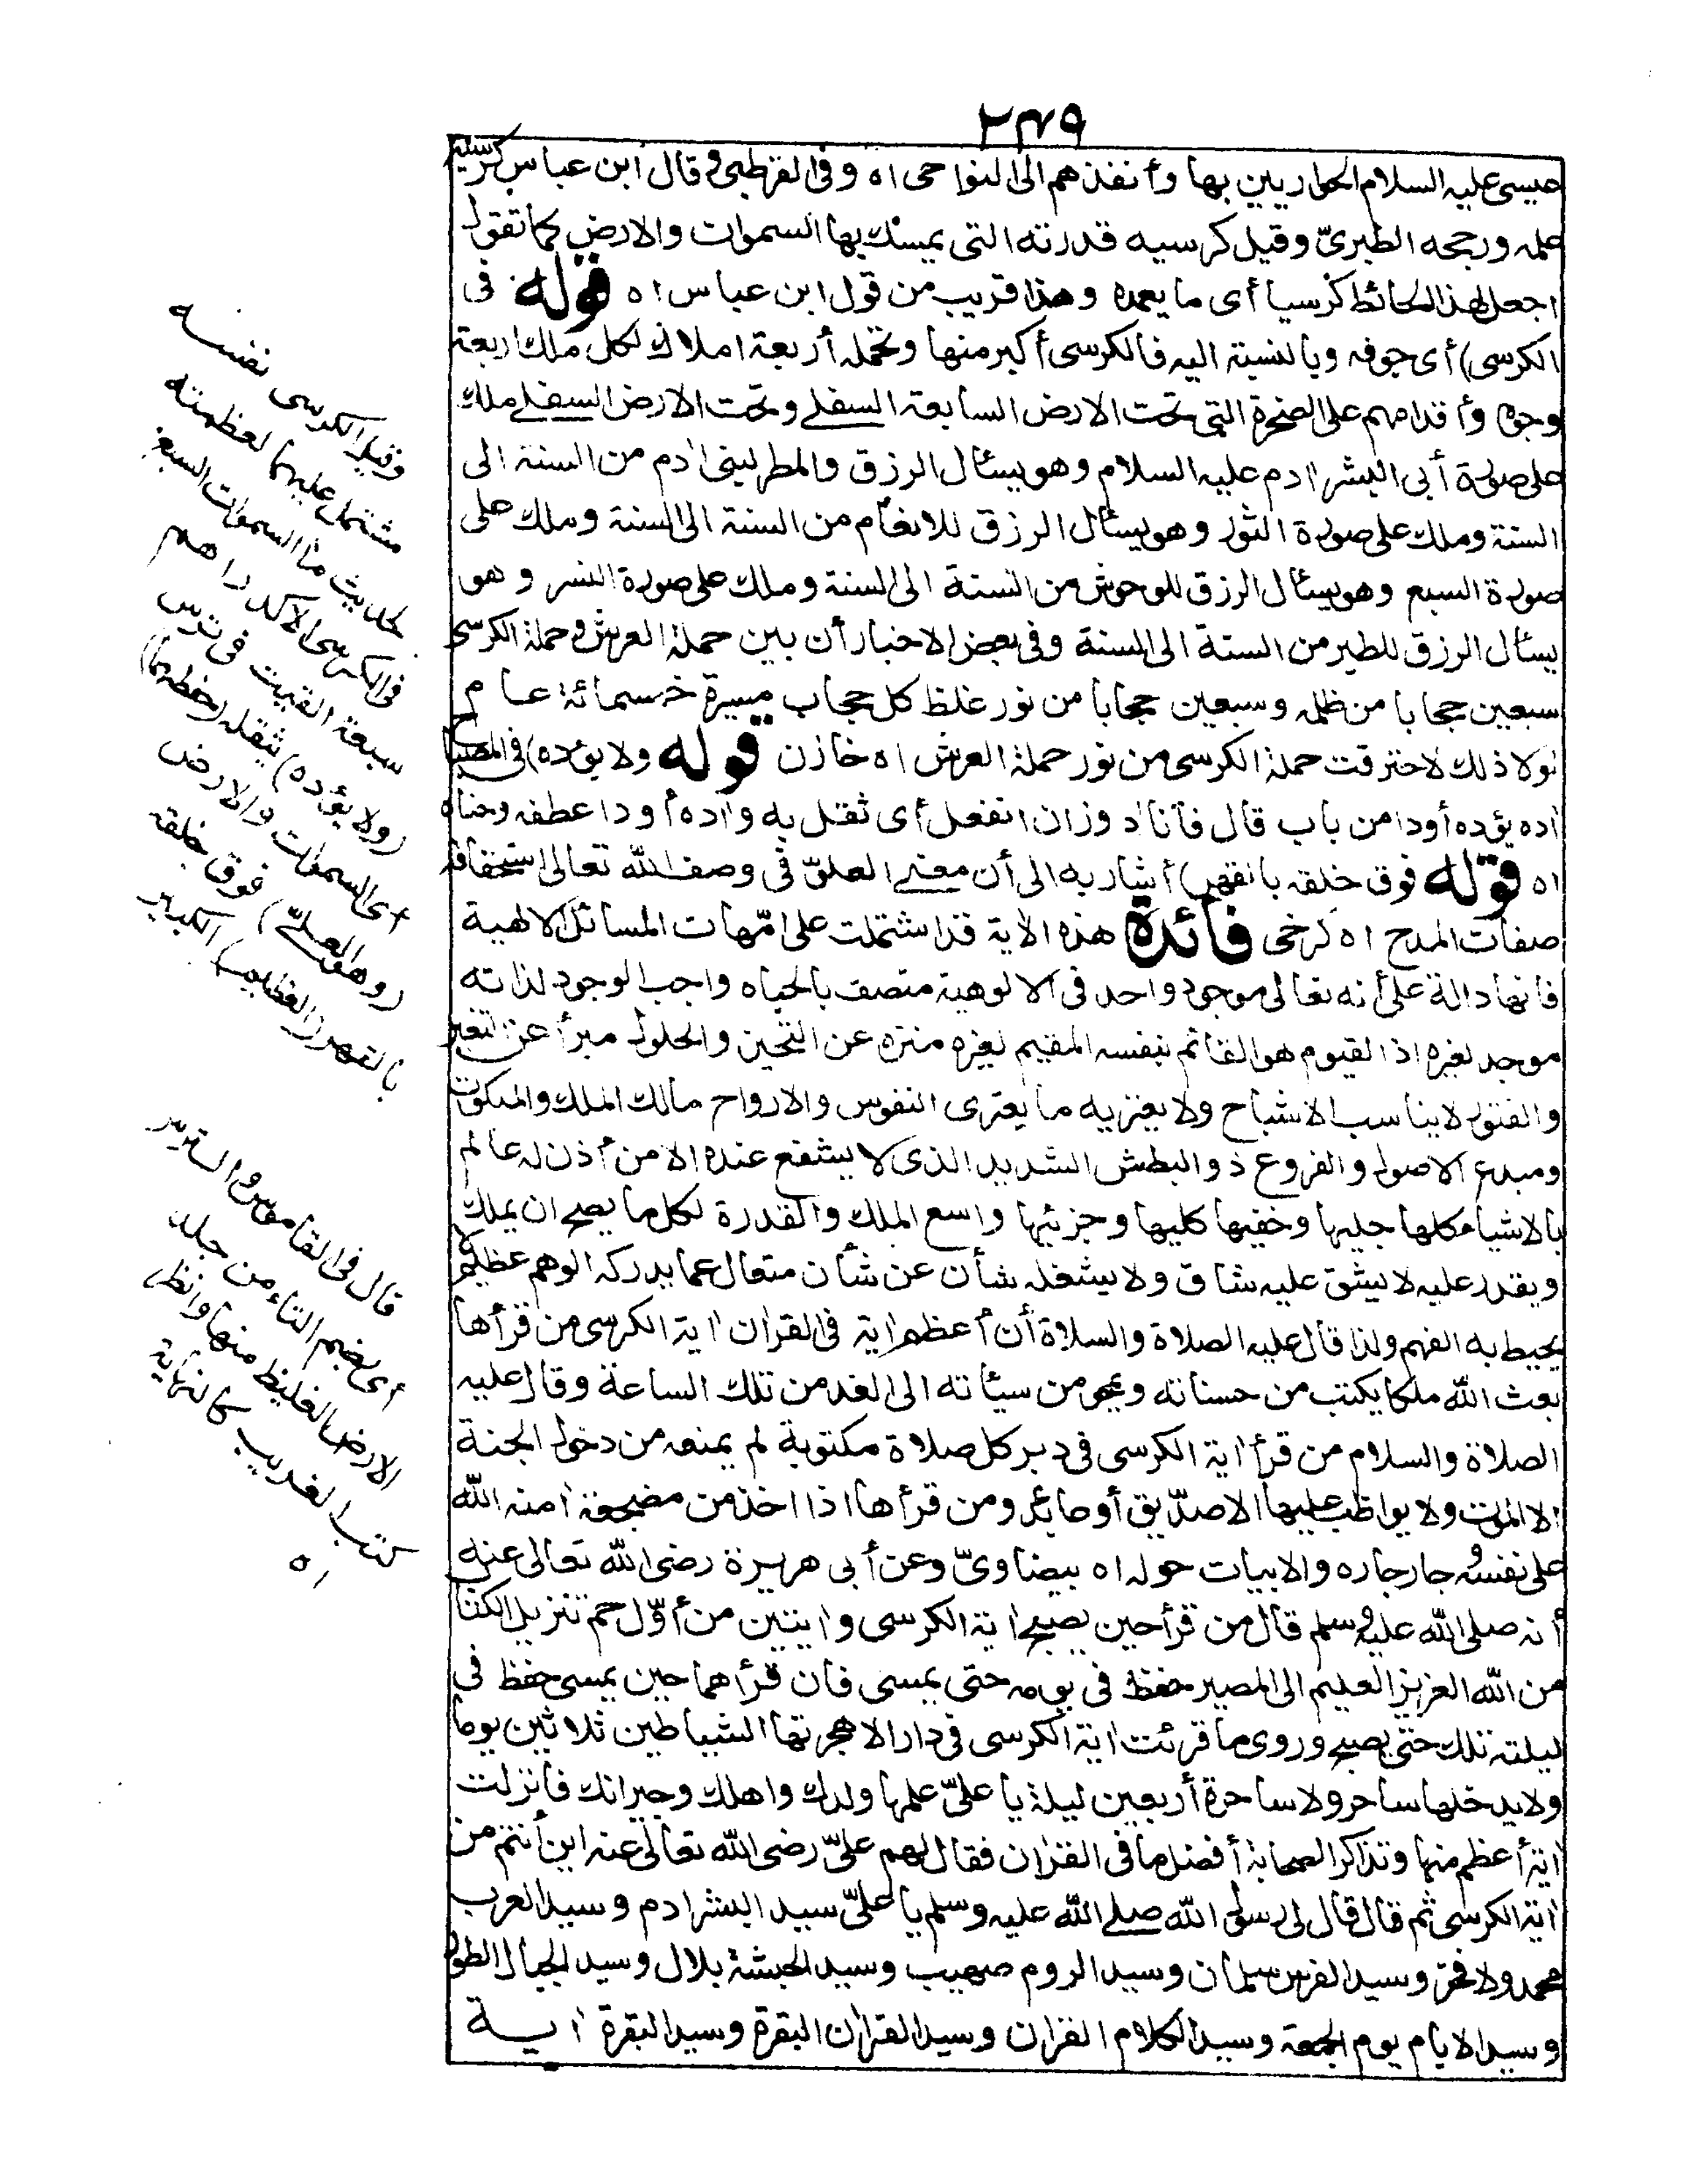 ٢٣٩
عيسى عليه السلام الحواريين بها وأنفذهم الى النواحى اه وفى القرطبى وقال ابن عباس كرسيه
علمه ورجحه الطبرىّ وقيل كرسيه قدرته التى يمسك بها السموات والارض كما تقول
اجعل لهذا الحائط كرسيا أى ما يعمده وهذا قريب من قول ابن عباس اه قوله فى
الكرسى) أى جوفه وبالنسبة اليه فالكرسى أكبر منها وتحمله أربعة املاك لكل ملك اربعة
وجوه وأقدامهم على الصخرة التى تحت الارض السابعة السفلى وتحت الارض السفلى ملك
على صورة أبى البشر ادم عليه السلام وهو يسئال الرزق والمطر لبنى ادم من السنة الى
السنة وملك على صورة الثور وهو يسئال الرزق للانعام من السنة الى السنة وملك على
صورة السبع وهو يسئال الرزق للوحوش من السنة الى السنة وملك على صورة النسر وهو
يسئال الرزق للطير من السنة الى السنة وفى بعض الاخبار أن بين حملة العرش وحملة الكرسى
سبعين حجابا من ظلمه وسبعين حجابا من نور غلظ كل حجاب مسيرة خمسمائة عام
لولا ذلك لاحترقت حملة الكرسى من نور حملة العرش اه خازن قوله ولا يؤده) فى المصباح
اده يؤده أودا من باب قال فآناد وزان انفعل أى ثقل به واده أودا عطفه وحناه
اه قوله فوق خلقه بالقهر) أشار به الى أن معنى العلوّ فى وصف الله تعالى استحقاقه
صفات المدح اه كرخى فائدة هذه الاية قد اشتملت على امّهات المسائل الالهية
فانها دالة على أنه تعالى موجود واحد فى الالوهية متصف بالحياه واجب الوجود لذاته
موجد لغيره اذ القيوم هو القائم بنفسه المقيم لغيره منزه عن التحيز والحلول مبرأ عن التغير
والفتور لا يناسب الاشباح ولا يعتريه ما يعترى النفوس والارواح مالك الملك والملكوت
ومبدع الاصول والفروع ذو البطش الشديد الذى لا يشفع عنده الا من أذن له عالم
بالاشياء كلها جليها وخفيها كليها وجزئيها واسع الملك والقدرة لكل ما يصح ان يملك
ويقدر عليه لا يشق عليه شاق ولا يشغله شأن عن شأن متعال عما يدركه الوهم عظيم لا
يحيط به الفهم ولذا قال عليه الصلاة والسلاة أن أعظم اية فى القران اية الكرسى من قرأها
بعث الله ملكا يكتب من حسناته ويمحو من سيئاته الى الغد من تلك الساعة وقال عليه
الصلاة والسلام من قرأ اية الكرسى فى دبر كل صلاة مكتوبة لم يمنعه من دخول الجنة
الا الموت ولا يواظب عليها الا صدّيق أو عابد ومن قرأها اذا اخذ من مضجعة امنه الله
على نفسه وجار جاره والابيات حوله اه بيضاوىّ وعن أبى هريرة رضى الله تعالى عنه
أنه صلى الله عليه وسلم قال من قرأ حين يصبح اية الكرسى وايتين من أوّل حم تنزيل الكتاب
من الله العزيز العليم الى المصير حفظ فى يومه حتى يمسى فان قرأهما حين يمسى حفظ فى
ليلته تلك حتى يصبح وروى ما قرئت اية الكرسى فى دار الا هجرتها الشياطين ثلاثين يوما
ولا يدخلها ساحر ولا ساحرة أربعين ليلة يا علىّ علمها ولدك واهلك وجيرانك فما نزلت
اية أعظم منها وتذاكر الصحابة أفضل ما فى القران فقال لهم علىّ رضى الله تعالى عنه اين أنتم من
اية الكرسى ثم قال قال لى رسول الله صلى الله عليه وسلم يا علىّ سيد البشر ادم وسيد العرب
محمد ولا فخر وسيد الفرس سلمان وسيد الروم صهيب وسيد الحبشة بلال وسيد الجبال الطور
وسيد الايام يوم الجمعة وسيد الكلام القران وسيد القران البقرة وسيد البقرة اية
وقيل الكرسى نفسه
مشتمل عليهما لعظمته
لحديث ما السموات السبع
فى الكرسى الا كدراهم
سبعة القيت فى ترس
(ولا يؤده) يثقله (حفظهما)
أى السموات والارض
(وهو العلىّ) فوق خلقه
بالقهر (العظيم) الكبير
قال فى القاموس والترس
أى بضم التاء من جلد
الارض الغليظ منها وانظر
كتب الغريب كالنهاية
اه